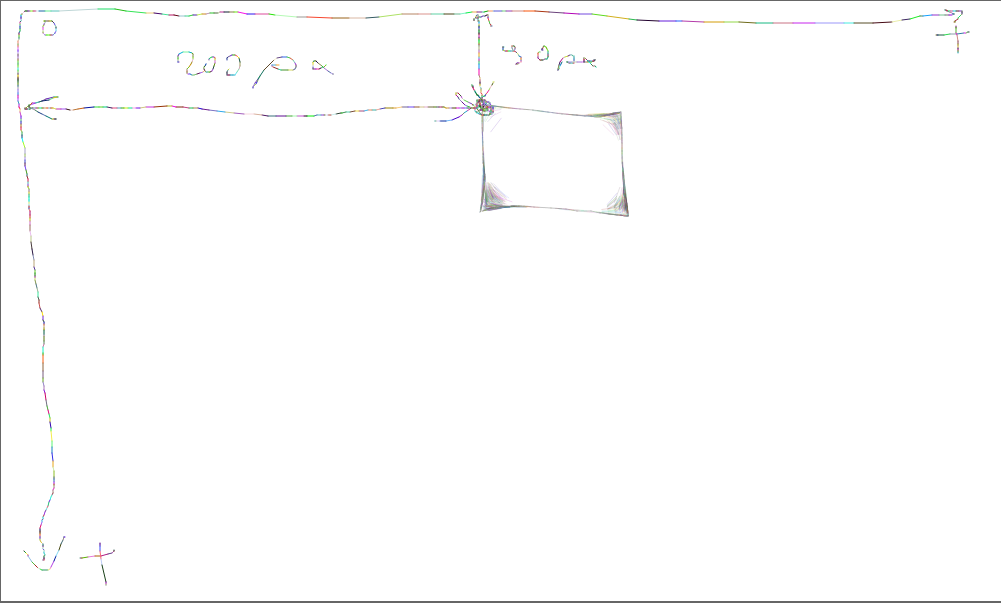 0
+
200 px
30 px
+